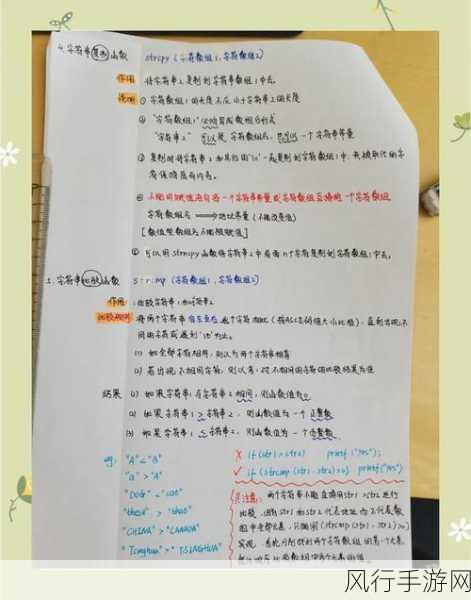 4. 字符串复制函数 strcpy (字符数组1, 字符串2)
作用: 将字符串2复制到字符数组1中去。
说明: ① 字符数组1的长度不应小于字符串2的长度
② "字符数组1"必须写成数组名形式
"字符串2" 可以是字符数组名, 也可以一个字符串常量
③ 复制时将字符串2和其后的'\0'一起复制到字符数组1中,
④ 不能用赋值语句将一个字符串常量或字符数组直接给一个字符数组
字符数组名 地址常量 (不能改变值)
[数值型数组名不能被赋值]
⑤ 可以用strncpy函数将字符串2中前面n个字符复制到字符数组1中去。
5. 字符串比较函数 strcmp (字符串1, 字符串2)
作用: 比较字符串1和字符串2
比较规则: 将两个字符串自左至右逐个字符相比 (按ASCII码值大小比较), 直到出现不
同的字符或遇到'\0'为止。
(1) 如全部字符相同, 则认为两个字符串相等
(2) 若出现不相同字符, 则以第一对不相同的字符的比较结果为准
结果 (1) 如果字符串1与字符串2相同, 则函数值为0
(2) 如果字符串1 > 字符串2, 则函数值为一个正整数
(3) 如果字符串1 < 字符串2, 则函数值为一个负整数
eg: "A" < "B"
"a" > "A"
"CHINA" > "CANADA"
"Tsinghua" > "TSINGHUA"
× if (str1 > str2) printf ("yes");
✓ if (strcmp (str1, str2) > 0) printf("yes")
注意: 两个字符串不能直接用str1 > str2进行
比较, 因为str1和str2代表地址而不代表数
组中全部元素, 只能用 (strcmp (str1, str2) > 0)
实现, 系统分别找到两个字符数组的第一个元素,
风行手游网